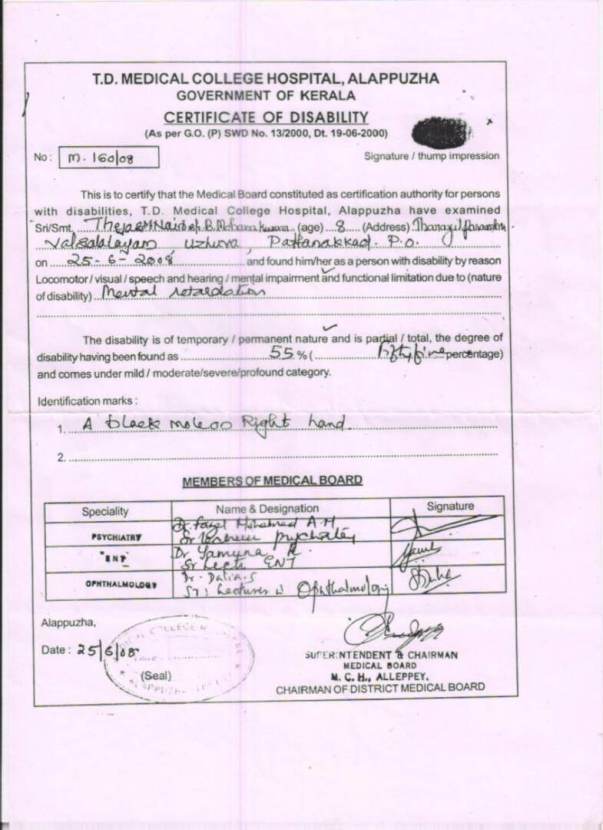 T.D. MEDICAL COLLEGE HOSPITAL, ALAPPUZHA
GOVERNMENT OF KERALA
CERTIFICATE OF DISABILITY
(As per G.O. (P) SWD No. 13/2000, Dt. 19-06-2000)
No: M. 160/08
Signature / thump impression
This is to certify that the Medical Board constituted as certification authority for persons
with disabilities, T.D. Medical College Hospital, Alappuzha have examined
Sri/Smt. Thejas Nair (age) 8 (Address)
Valsalalayam, Uzhuva, Pattanakkad. P.O.
on 25-6-2008 and found him/her as a person with disability by reason
Locomotor / visual / speech and hearing / mental impairment and functional limitation due to (nature
of disability) Mental retardation
The disability is of temporary / permanent nature and is partial / total, the degree of
disability having been found as 55 % ( fifty five percentage)
and comes under mild / moderate/severe/profound category.
Identification marks :
1. A black mole on Right hand.
2.
MEMBERS OF MEDICAL BOARD
Speciality Name & Designation Signature
PSYCHIATRY Dr Mohamed A.M
ENT Dr Yamuna R.
Sr Lect ENT
OPHTHALMOLOGY Dr. Dalia.S
Sr. Lecturer in Ophthalmology
Alappuzha,
Date : 25/6/08
(Seal)
SUPERINTENDENT & CHAIRMAN
MEDICAL BOARD
M. C. H., ALLEPPEY.
CHAIRMAN OF DISTRICT MEDICAL BOARD